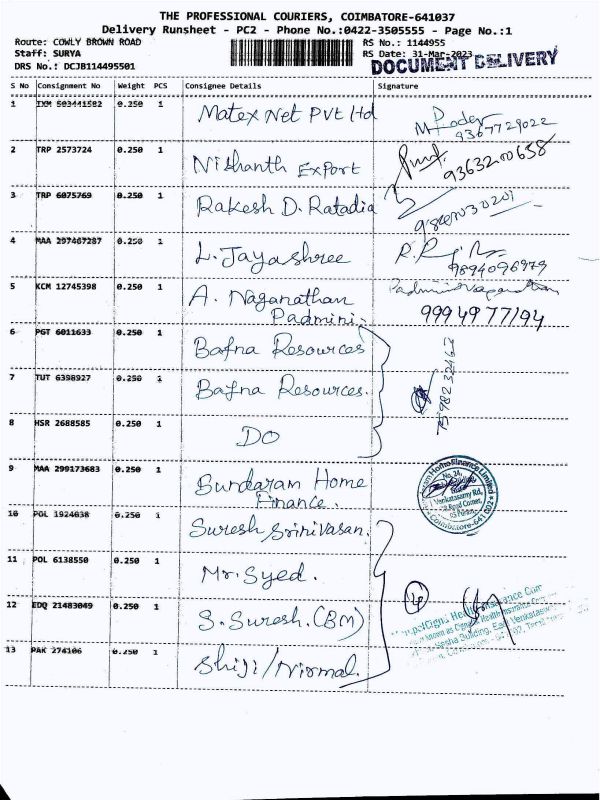 THE PROFESSIONAL COURIERS, COIMBATORE-641037
Delivery Runsheet - PC2 - Phone No.:0422-3505555 - Page No.:1
Route: COWLY BROWN ROAD RS No.: 1144955
Staff: SURYA RS Date: 31-Mar-2023
DRS No.: DCJB114495501 DOCUMENT DELIVERY
S No Consignment No Weight PCS Consignee Details Signature
1 IXM 503441582 0.250 1 Matex Net Pvt Ltd
9367729022
2 TRP 2573724 0.250 1 Nishanth Export
9363200658
3 TRP 6075769 0.250 1 Rakesh D. Ratadia
4 MAA 297467287 0.250 1 L. Jayashree
9894096979
5 KCM 12745398 0.250 1 A. Naganathan
Padmini. 9994977194
6 PGT 6011633 0.250 1 Bafna Resources
7 TUT 6398927 0.250 1 Bafna Resources.
8 HSR 2688585 0.250 1 DO
9 MAA 299173683 0.250 1 Sundaram Home
Finance.
No. 24,
Venkatasamy Rd,
Coimbatore-641 002
10 POL 1924638 0.250 1 Suresh Srinivasan.
11 POL 6138550 0.250 1 Mr. Syed.
12 EDQ 21483049 0.250 1 S. Suresh. (BM)
13 PAK 274106 0.250 1 Shiji/Nirmal.